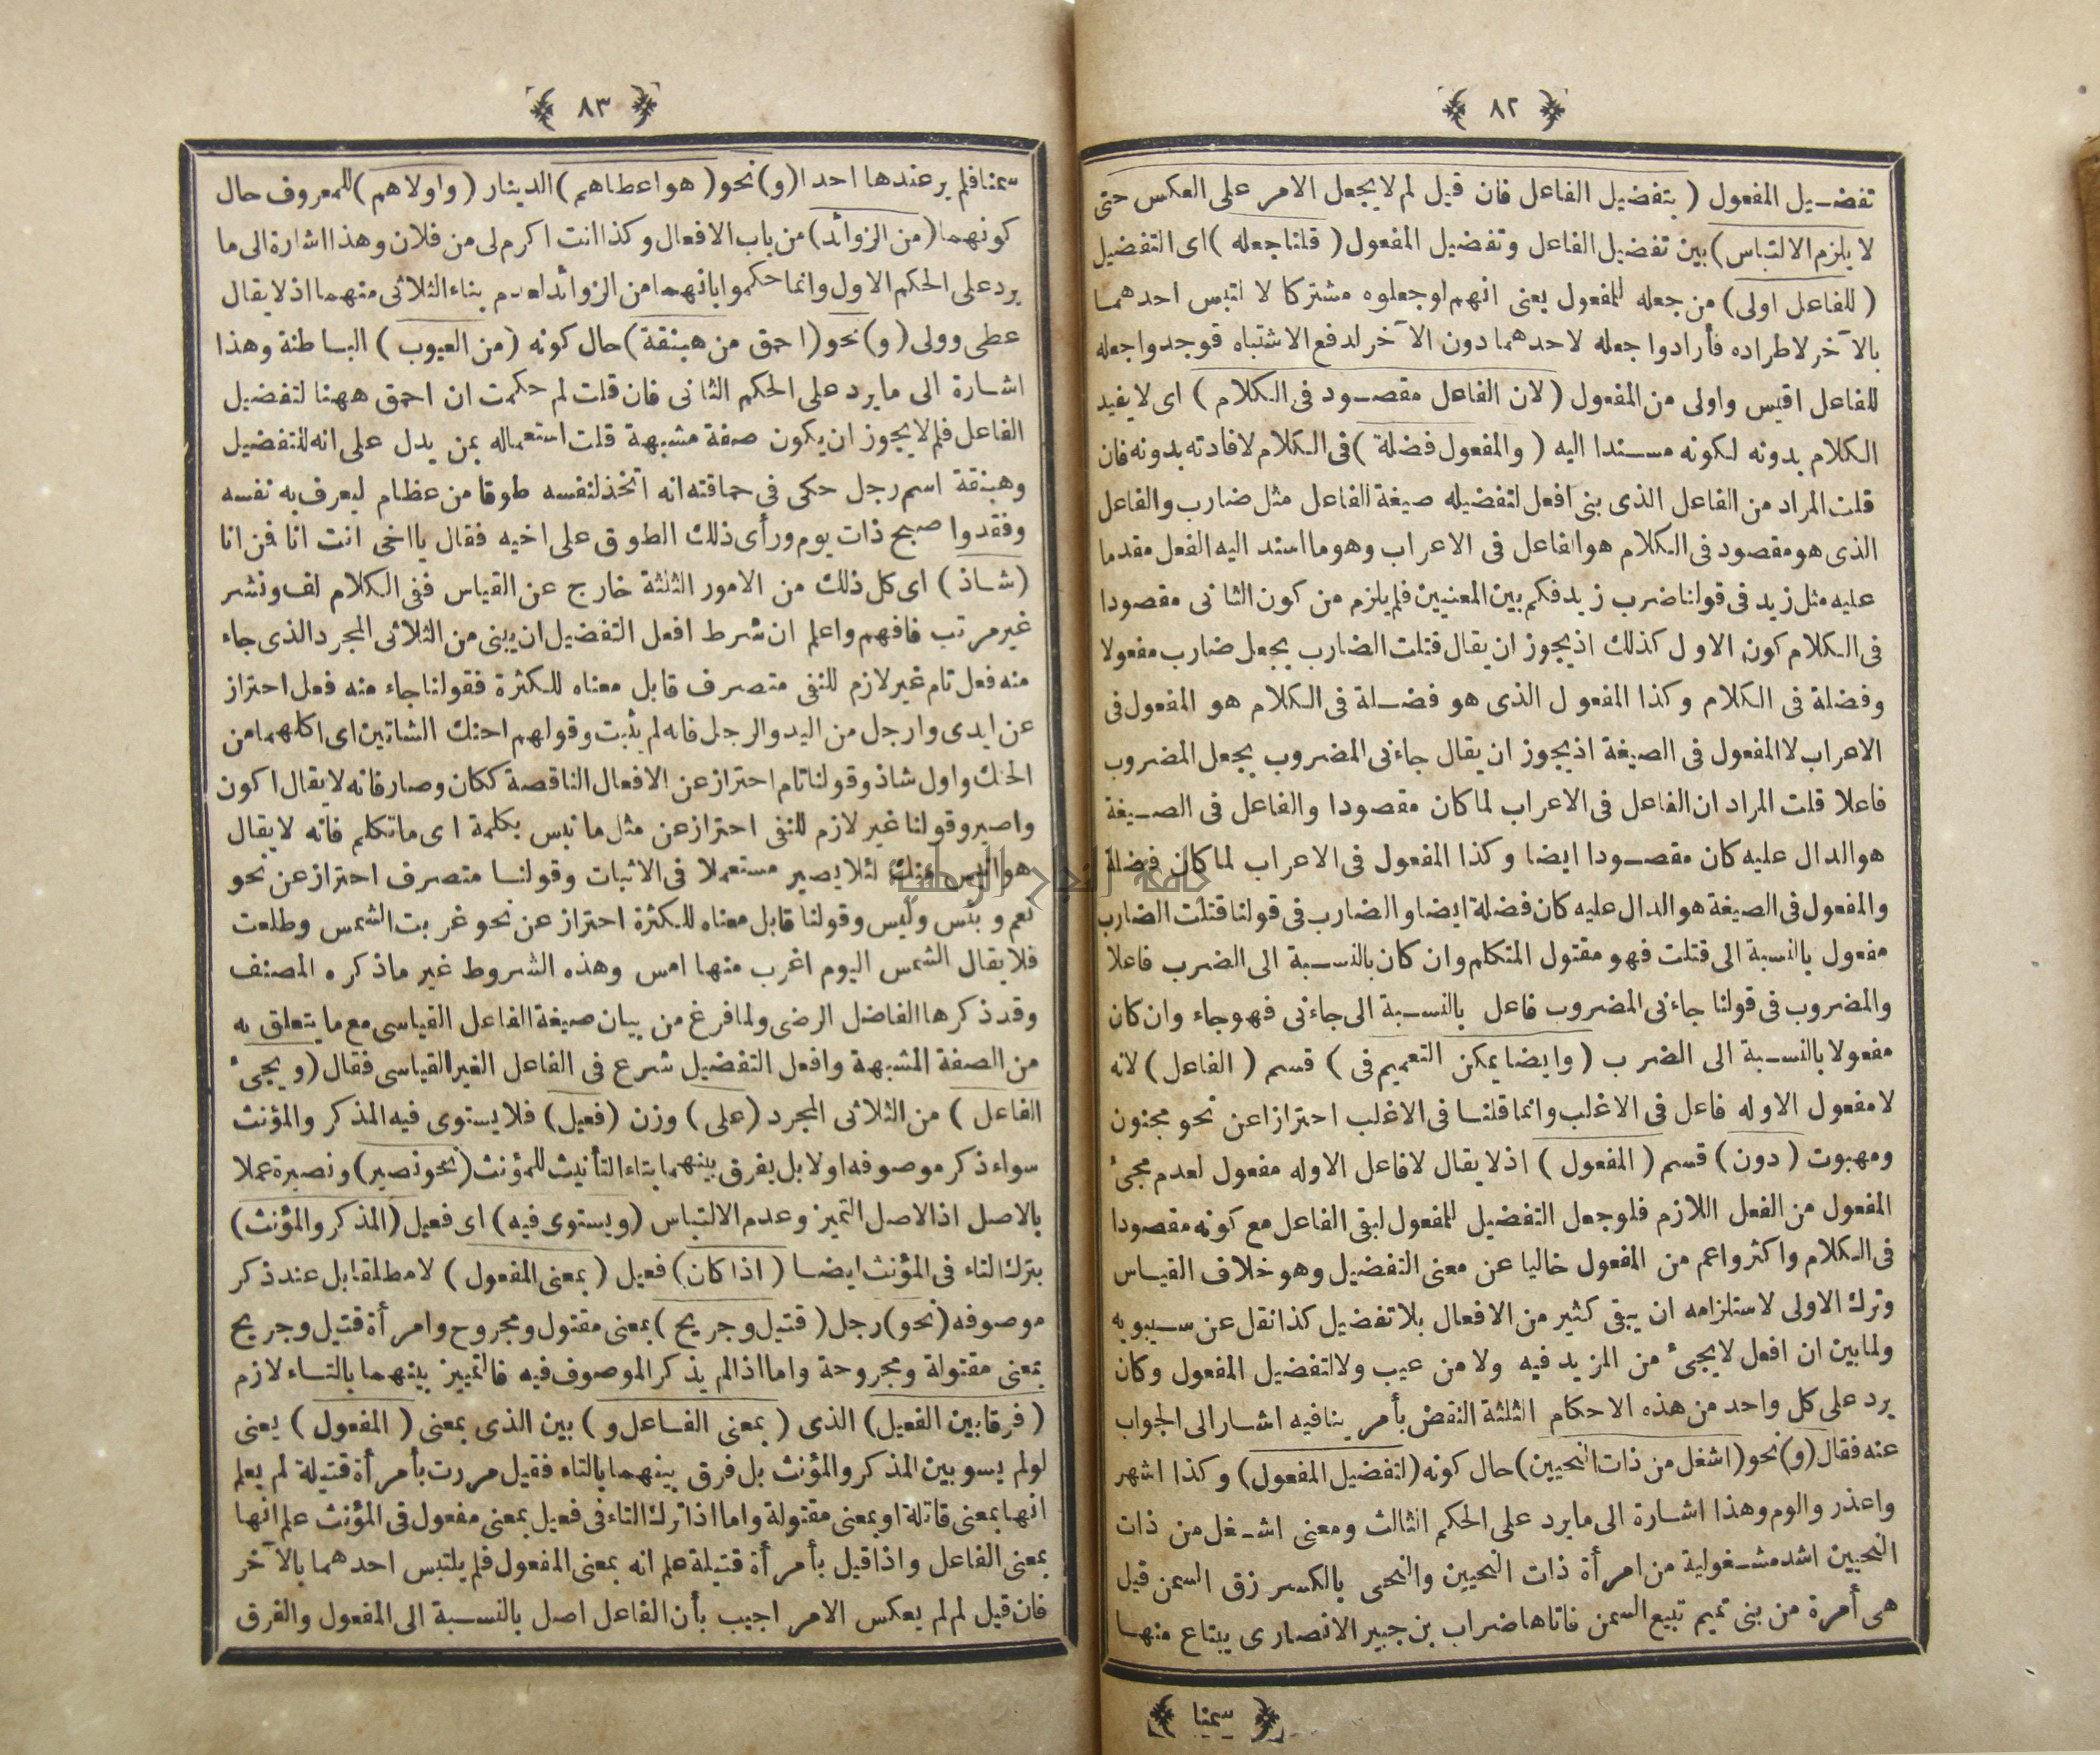 ﴿ ٨٢ ﴾
تفضيل المفعول ( بتفضيل الفاعل فان قيل لم لا يجعل الامر على العكس حتى
لا يلزم الالتباس ) بين تفضيل الفاعل وتفضيل المفعول ( قلنا جعله ) اى التفضيل
( للفاعل اولى ) من جعله للمفعول يعنى انهم لو جعلوه مشتركا لا لتبس احدهما
بالآخر لاطراده فأرادوا جعله لاحدهما دون الآخر لدفع الاشتباه فوجدوا جعله
للفاعل اقيس واولى من المفعول ( لان الفاعل مقصود فى الكلام ) اى لا يفيد
الكلام بدونه لكونه مسندا اليه ( والمفعول فضلة ) فى الكلام لافادته بدونه فان
قلت المراد من الفاعل الذى بنى افعل لتفضيله صيغة الفاعل مثل ضارب والفاعل
الذى هو مقصود فى الكلام هو الفاعل فى الاعراب وهو ما اسند اليه الفعل مقدما
عليه مثل زيد فى قولنا ضرب زيد فكم بين المعنيين فلم يلزم من كون الثانى مقصودا
فى الكلام كون الاول كذلك اذ يجوز ان يقال قتلت الضارب يجعل ضارب مفعولا
وفضلة فى الكلام وكذا المفعول الذى هو فضلة فى الكلام هو المفعول فى
الاعراب لا المفعول فى الصيغة اذ يجوز ان يقال جاءنى المضروب يجعل المضروب
فاعلا قلت المراد ان الفاعل فى الاعراب لما كان مقصودا والفاعل فى الصيغة
هو الدال عليه كان مقصودا ايضا وكذا المفعول فى الاعراب لما كان فضلة
والمفعول فى الصيغة هو الدال عليه كان فضلة ايضا والضارب فى قولنا قتلت الضارب
مفعول بالنسبة الى قتلت فهو مقتول المتكلم وان كان بالنسبة الى الضرب فاعلا
والمضروب فى قولنا جاءنى المضروب فاعل بالنسبة الى جاءنى فهو جاء وان كان
مفعولا بالنسبة الى الضرب ( وايضا يمكن التعميم فى ) قسم ( الفاعل ) لانه
لا مفعول الا وله فاعل فى الاغلب وانما قلنا فى الاغلب احترازا عن نحو مجنون
ومهبوت ( دون ) قسم ( المفعول ) اذ لا يقال لا فاعل الا وله مفعول لعدم مجئ
المفعول من الفعل اللازم فلو جعل التفضيل للمفعول لبقى الفاعل مع كونه مقصودا
فى الكلام واكثر واعم من المفعول خاليا عن معنى التفضيل وهو خلاف القياس
وترك الاولى لاستلزامه ان يبقى كثير من الافعال بلا تفضيل كذا نقل عن سيبويه
ولما بين ان افعل لا يجئ من المزيد فيه ولا من عيب ولا لتفضيل المفعول وكان
يرد على كل واحد من هذه الاحكام الثلثة النقض بأمر ينافيه اشار الى الجواب
عنه فقال ( و ) نحو ( اشغل من ذات النحيين ) حال كونه ( لتفضيل المفعول ) وكذا اشهر
واعذر والوم وهذا اشارة الى ما يرد على الحكم الثالث ومعنى اشغل من ذات
النحيين اشد مشغولية من امرأة ذات النحيين والنحى بالكسر زق السمن قيل
هى أمرة من بنى تميم تبيع السمن فاتاها ضراب بن جبير الانصارى يبتاع منها
﴿ سمنا ﴾
﴿ ٨٣ ﴾
سمنا فلم ير عندها احدا ( و ) نحو ( هو اعطاهم ) الدينار ( واولاهم ) للمعروف حال
كونهما ( من الزوائد ) من باب الافعال وكذا انت اكرم لى من فلان وهذا اشارة الى ما
يرد على الحكم الاول وانما حكموا بانهما من الزوائد لعدم بناء الثلاثى منهما اذ لا يقال
عطى وولى ( و ) نحو ( احمق من هبنقة ) حال كونه ( من العيوب ) الباطنة وهذا
اشارة الى ما يرد على الحكم الثانى فان قلت لم حكمت ان احمق ههنا لتفضيل
الفاعل فلم لا يجوز ان يكون صفة مشبهة قلت استعماله بمن يدل على انه للتفضيل
وهبنقة اسم رجل حكى فى حماقته انه اتخذ لنفسه طوقا من عظام ليعرف به نفسه
وفقدوا صبح ذات يوم ورأى ذلك الطوق على اخيه فقال يا اخى انت انا فمن انا
( شاذ ) اى كل ذلك من الامور الثلثة خارج عن القياس ففى الكلام لف ونشر
غير مرتب فافهم واعلم ان شرط افعل التفضيل ان يبنى من الثلاثى المجرد الذى جاء
منه فعل تام غير لازم للنفى متصرف قابل معناه للكثرة فقولنا جاء منه فعل احتراز
عن ايدى وارجل من اليد والرجل فانه لم يثبت وقولهم احنك الشاتين اى اكلهما من
الحنك واول شاذ وقولنا تام احتراز عن الافعال الناقصة ككان وصار فانه لا يقال اكون
واصير وقولنا غير لازم للنفى احتراز عن مثل ما نبس بكلمة اى ما تكلم فانه لا يقال
هو انبس منك لئلا يصير مستعملا فى الاثبات وقولنا متصرف احتراز عن نحو
نعم وبئس وليس وقولنا قابل معناه للكثرة احتراز عن نحو غربت الشمس وطلعت
فلا يقال الشمس اليوم اغرب منها امس وهذه الشروط غير ما ذكره المصنف
وقد ذكرها الفاضل الرضى ولما فرغ من بيان صيغة الفاعل القياسى مع ما يتعلق به
من الصفة المشبهة وافعل التفضيل شرع فى الفاعل الغير القياسى فقال ( ويجئ
الفاعل ) من الثلاثى المجرد ( على ) وزن ( فعيل ) فلا يستوى فيه المذكر والمؤنث
سواء ذكر موصوفه اولا بل يفرق بينهما بتاء التأنيث للمؤنث ( نحو نصير ) ونصيرة عملا
بالاصل اذ الاصل التميز وعدم الالتباس ( ويستوى فيه ) اى فعيل ( المذكر والمؤنث )
بترك التاء فى المؤنث ايضا ( اذا كان ) فعيل ( بمعنى المفعول ) لا مطلقا بل عند ذكر
موصوفه ( نحو ) رجل ( قتيل وجريح ) بمعنى مقتول ومجروح وامرأة قتيل وجريح
بمعنى مقتولة ومجروحة واما اذا لم يذكر الموصوف فيه فالتمييز بينهما بالتاء لازم
( فرقا بين الفعيل ) الذى ( بمعنى الفاعل و ) بين الذى بمعنى ( المفعول ) يعنى
لو لم يسو بين المذكر والمؤنث بل فرق بينهما بالتاء فقيل مررت بأمرأة قتيلة لم يعلم
انها بمعنى قاتلة او بمعنى مقتولة واما اذا ترك التاء فى فعيل بمعنى مفعول فى المؤنث علم انها
بمعنى الفاعل واذا قيل بأمرأة قتيلة علم انه بمعنى المفعول فلم يلتبس احدهما بالآخر
فان قيل لم لم يعكس الامر اجيب بأن الفاعل اصل بالنسبة الى المفعول والفرق